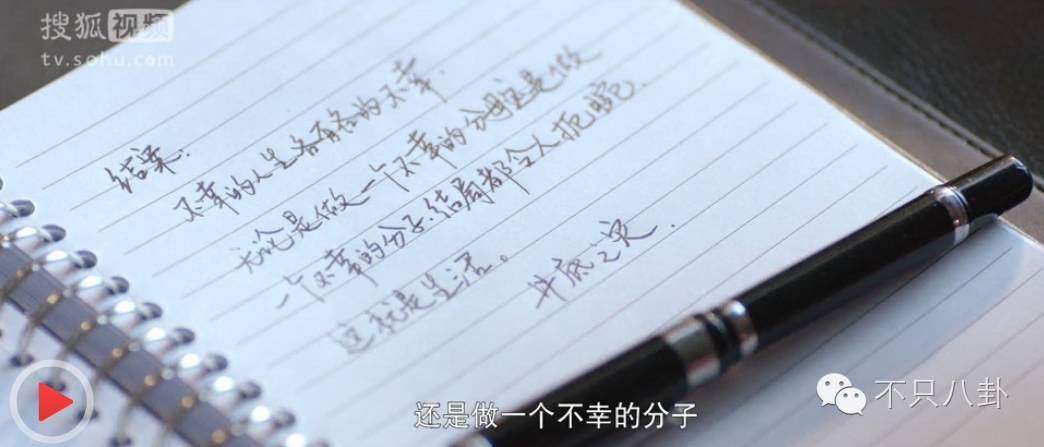 搜狐视频
tv.sohu.com
结案:
不幸的人生各有各的不幸.
无论是做一个不幸的分母还是做
一个不幸的分子.结局都令人扼腕.
这就是生活。
井底之
还是做一个不幸的分子
不只八卦